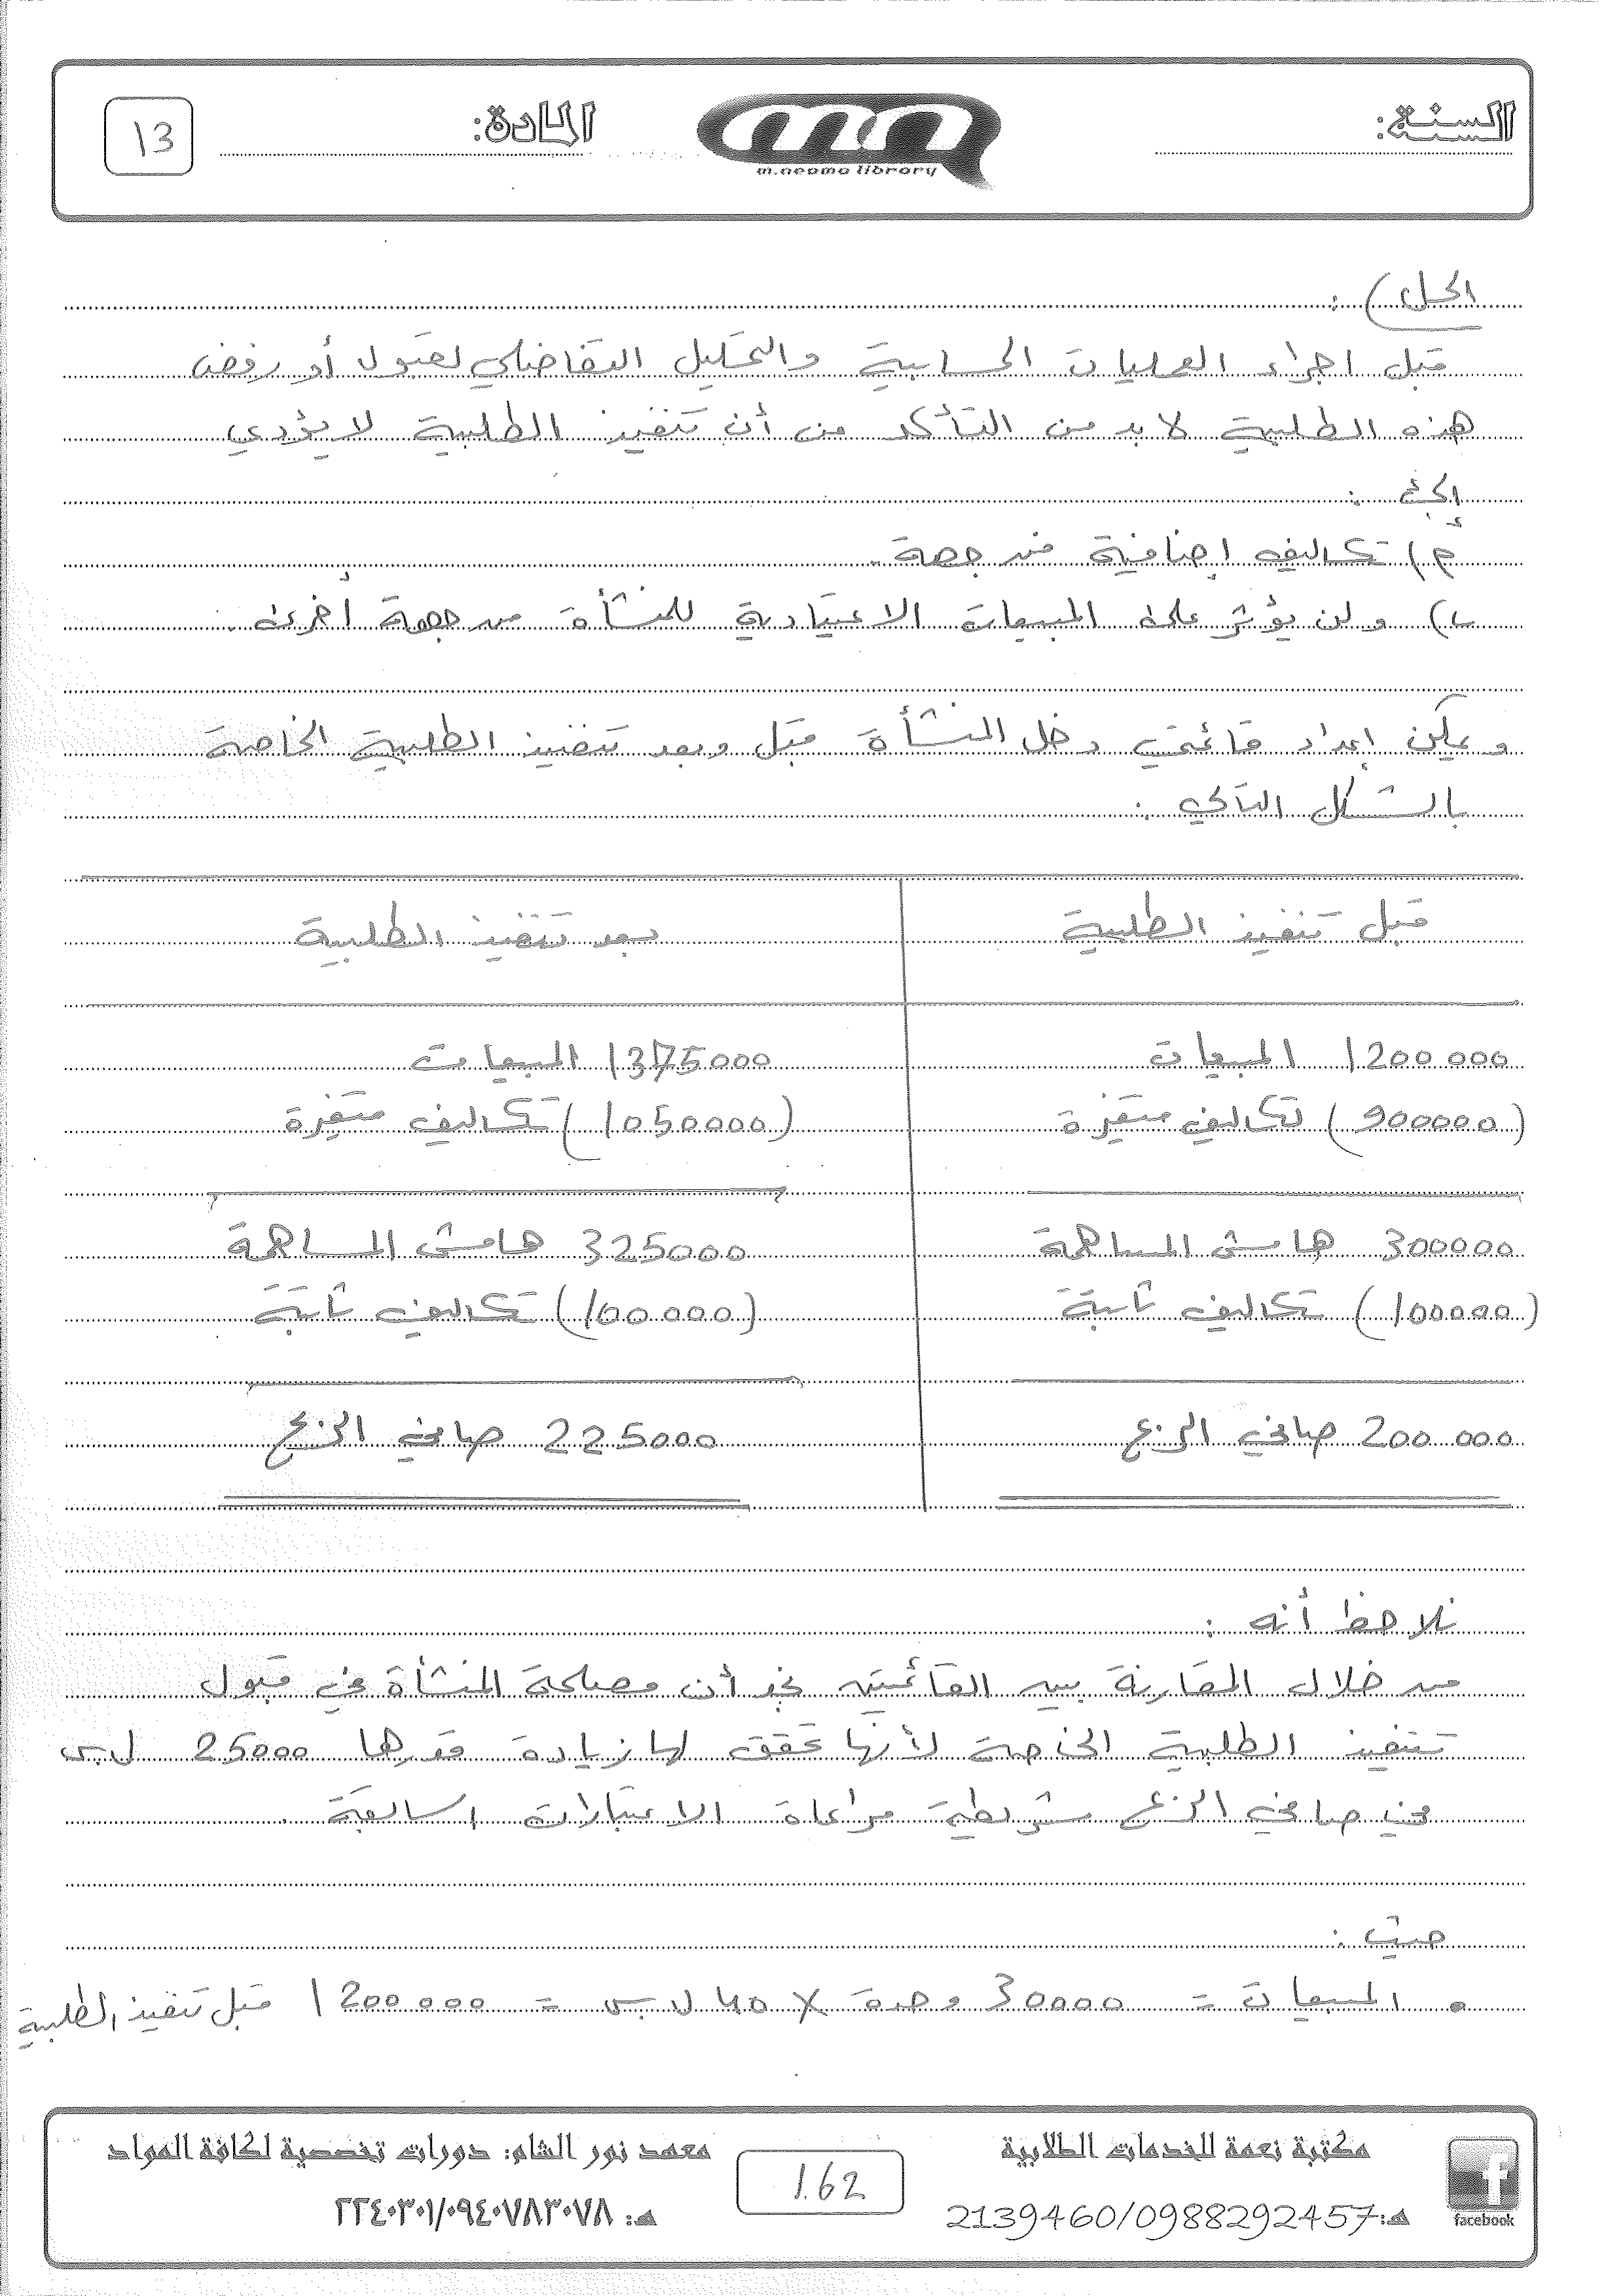 السنة:
المادة:
13
m.neoma library
الحل) :
قبل اجراء العمليات الحسابية والتحليل التفاضلي لقبول أو رفض
هذه الطلبية لا بد من التأكد من أن تنفيذ الطلبية لا يؤدي
إلى :
أ) تكاليف إضافية من جهة .
ب) ولن يؤثر على المبيعات الاعتيادية للمنشأة من جهة أخرى .
ويمكن إعداد قائمتي دخل المنشأة قبل وبعد تنفيذ الطلبية الخاصة
بالشكل التالي :
قبل تنفيذ الطلبية
بعد تنفيذ الطلبية
1200 000 المبيعات
1375000 المبيعات
(900000) تكاليف متغيرة
(1050000) تكاليف متغيرة
300000 هامش المساهمة
325000 هامش المساهمة
(100000) تكاليف ثابتة
(100000) تكاليف ثابتة
200 000 صافي الربح
225000 صافي الربح
نلاحظ أنه :
من خلال المقارنة بين القائمتين نجد أن مصلحة المنشأة في قبول
تنفيذ الطلبية الخاصة لأنها تحقق لها زيادة قدرها 25000 ل.س
في صافي الربح شريطة مراعاة الاعتبارات السابقة .
حيث :
• المبيعات = 30000 وحدة × 40 ل.س = 1200 000 قبل تنفيذ الطلبية
مكتبة نعمة للخدمات الطلابية
هـ: 2139460/0988292457
facebook
162
معهد نور الشام: دورات تخصصية لكافة المواد
هـ: ٢٢٤٠٣٠١/٠٩٤٠٧٨٣٠٧٨